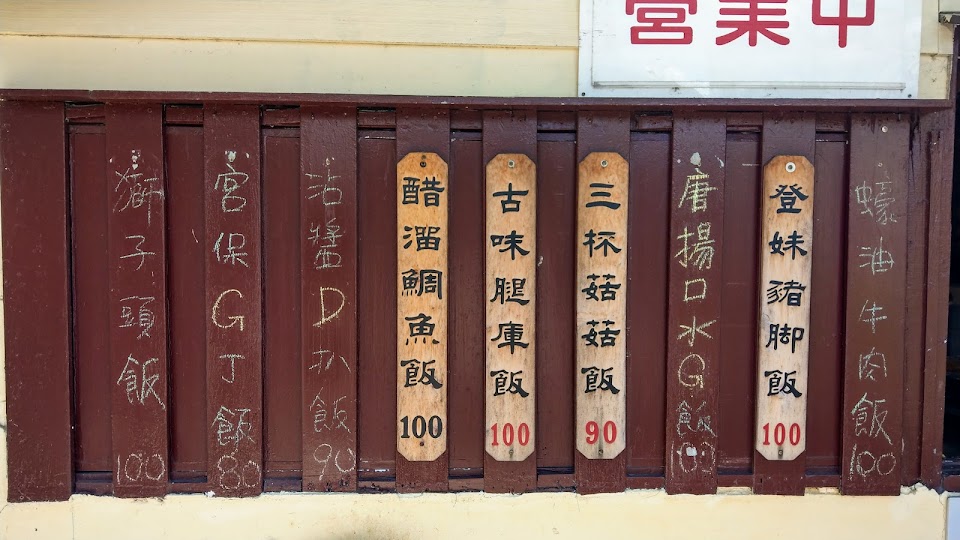 營業中
獅子頭飯 100
宮保G丁飯 80
沾醬D扒飯 90
醋溜鯛魚飯 100
古味腿庫飯 100
三杯菇菇飯 90
唐揚口水G飯 100
登妹豬脚飯 100
蠔油牛肉飯 100